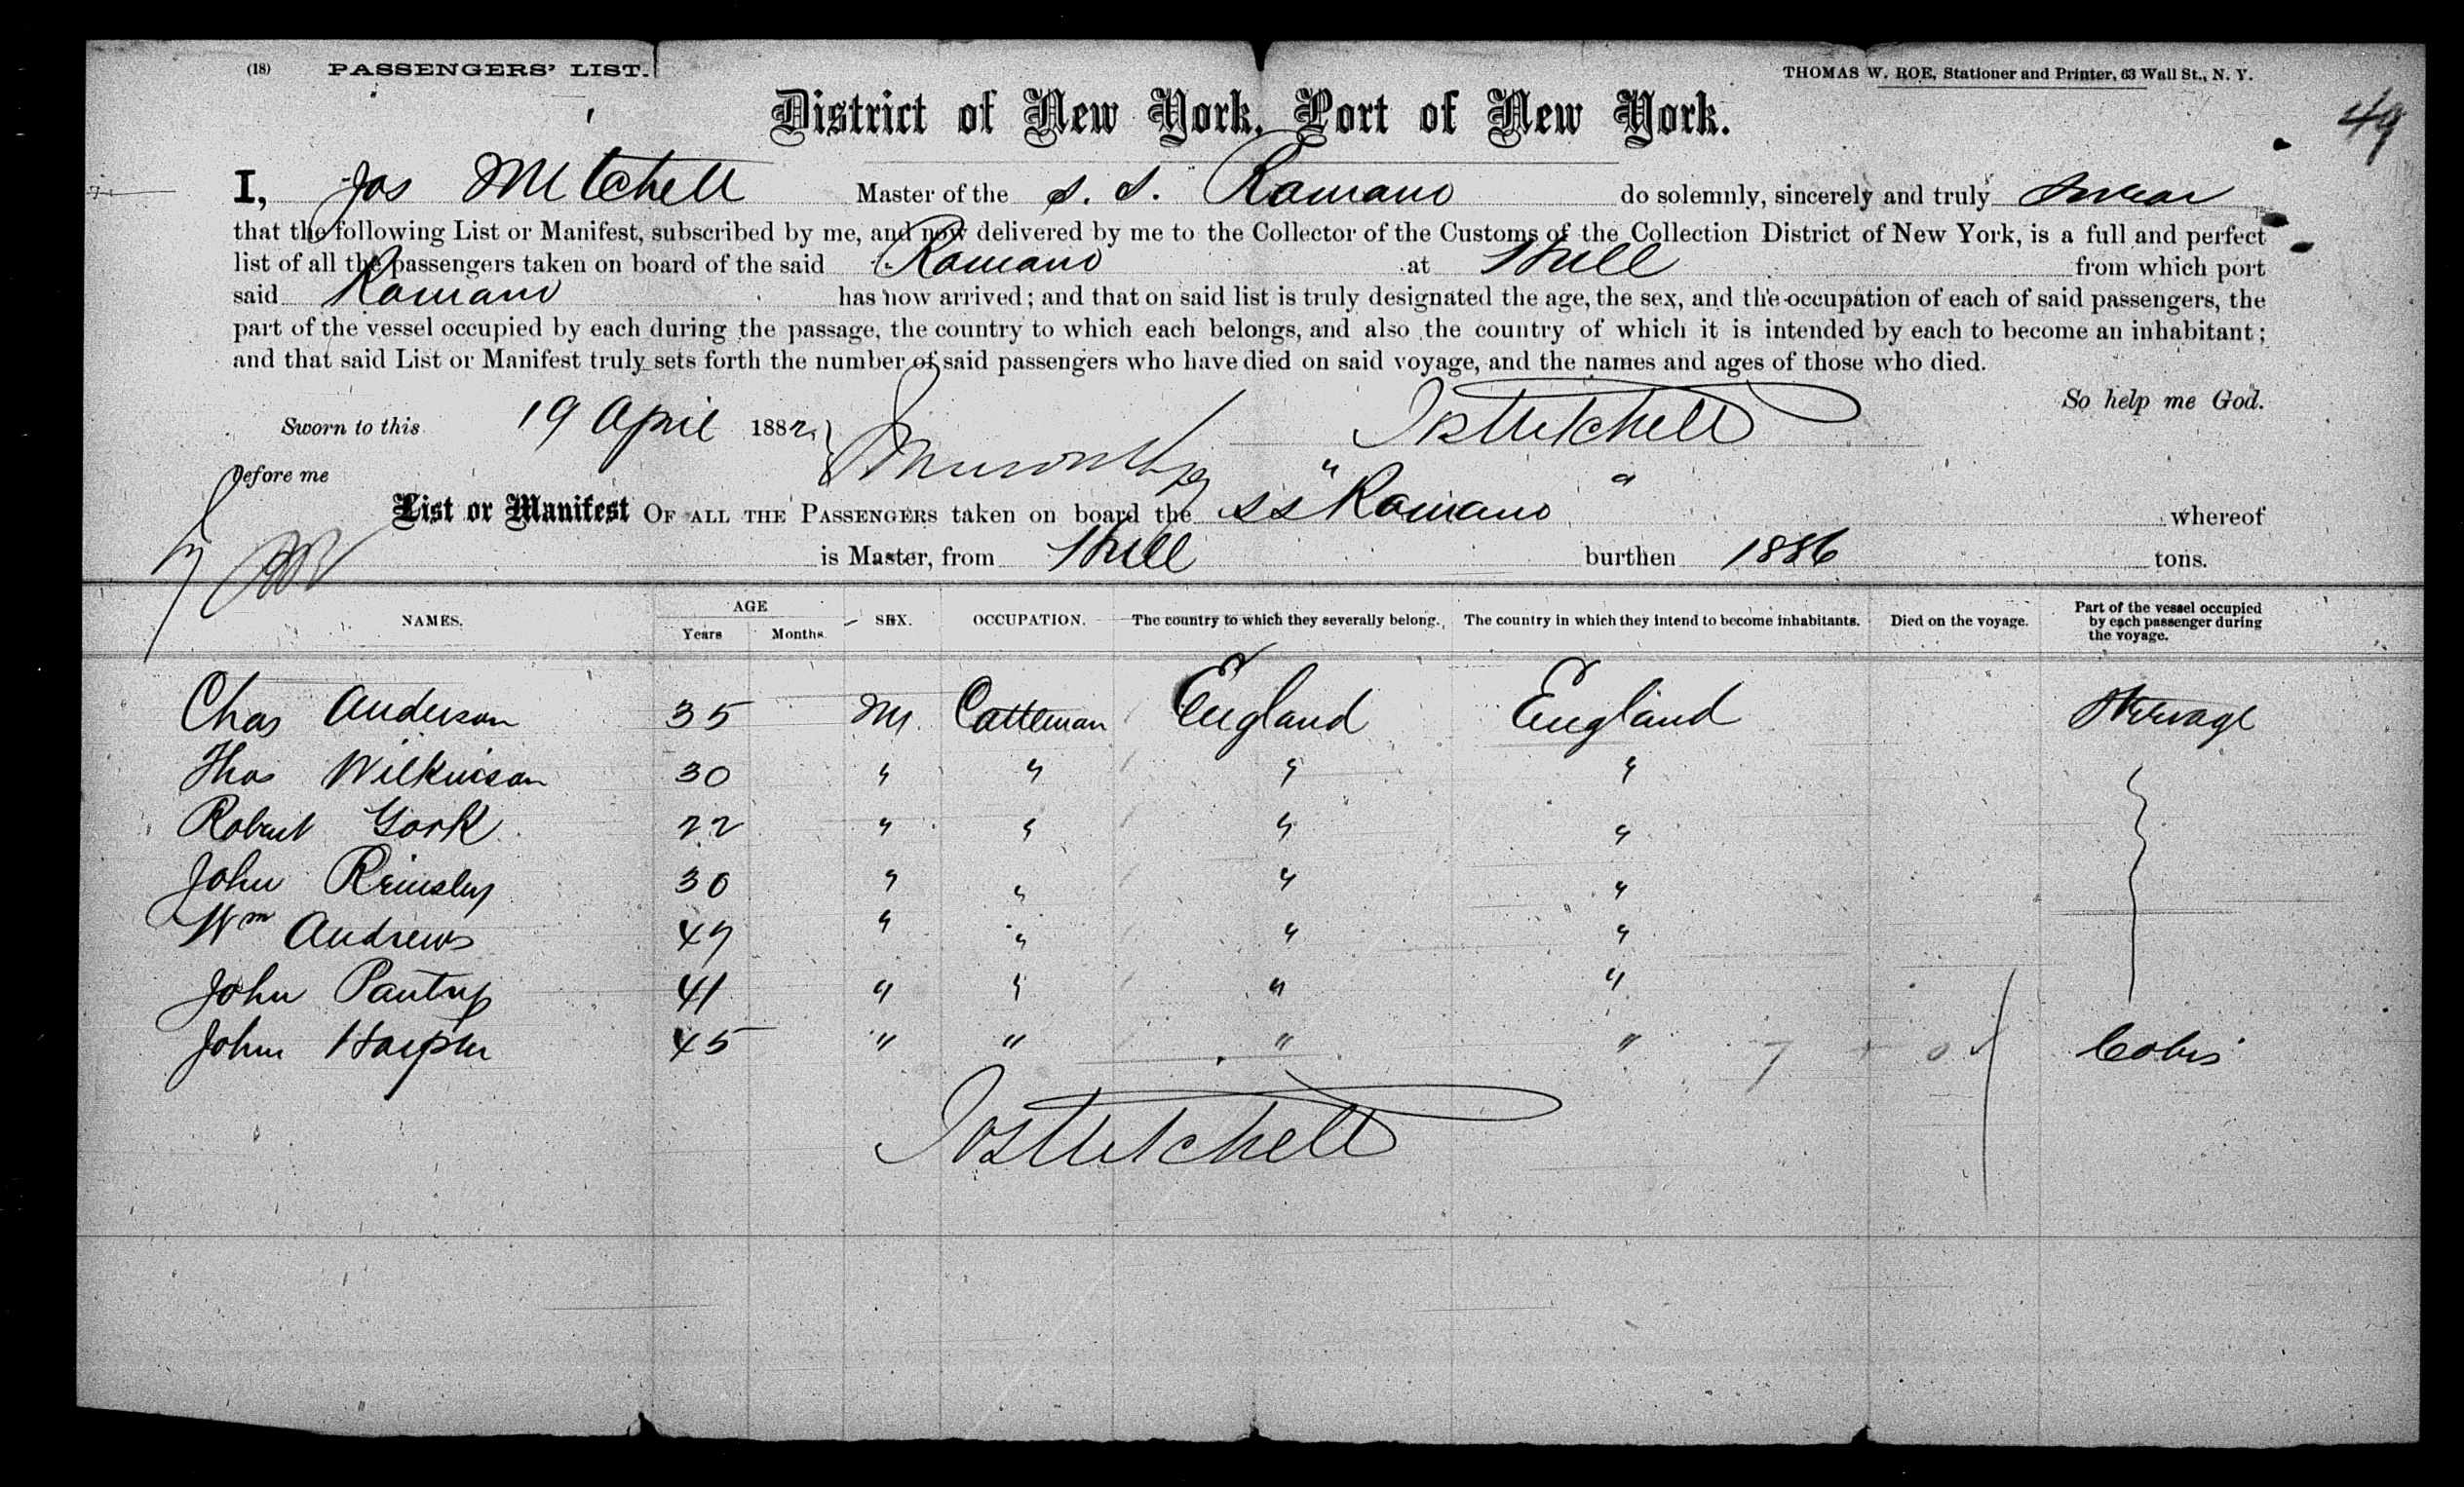 (18) PASSENGERS' LIST.
THOMAS W. ROE, Stationer and Printer, 63 Wall St., N. Y.
49
District of New York, Port of New York.
I, Jos Mitchell Master of the S. S. Romano do solemnly, sincerely and truly swear
that the following List or Manifest, subscribed by me, and now delivered by me to the Collector of the Customs of the Collection District of New York, is a full and perfect
list of all the passengers taken on board of the said Romano at Hull from which port
said Romano has now arrived; and that on said list is truly designated the age, the sex, and the occupation of each of said passengers, the
part of the vessel occupied by each during the passage, the country to which each belongs, and also the country of which it is intended by each to become an inhabitant;
and that said List or Manifest truly sets forth the number of said passengers who have died on said voyage, and the names and ages of those who died.
So help me God.
Sworn to this 19 April 1882 Jos Mitchell
Before me
List or Manifest OF ALL THE PASSENGERS taken on board the SS "Romano" whereof
is Master, from Hull burthen 1886 tons.
NAMES. AGE Years Months SEX. OCCUPATION. The country to which they severally belong. The country in which they intend to become inhabitants. Died on the voyage. Part of the vessel occupied by each passenger during the voyage.
Chas Anderson 35 M. Cattleman England England Steerage
Thos Wilkinson 30 " " " "
Robert York 22 " " " "
John 30 " " " "
Wm Andrews 47 " " " "
John 41 " " " "
John Harper 45 " " " " 7
Jos Mitchell